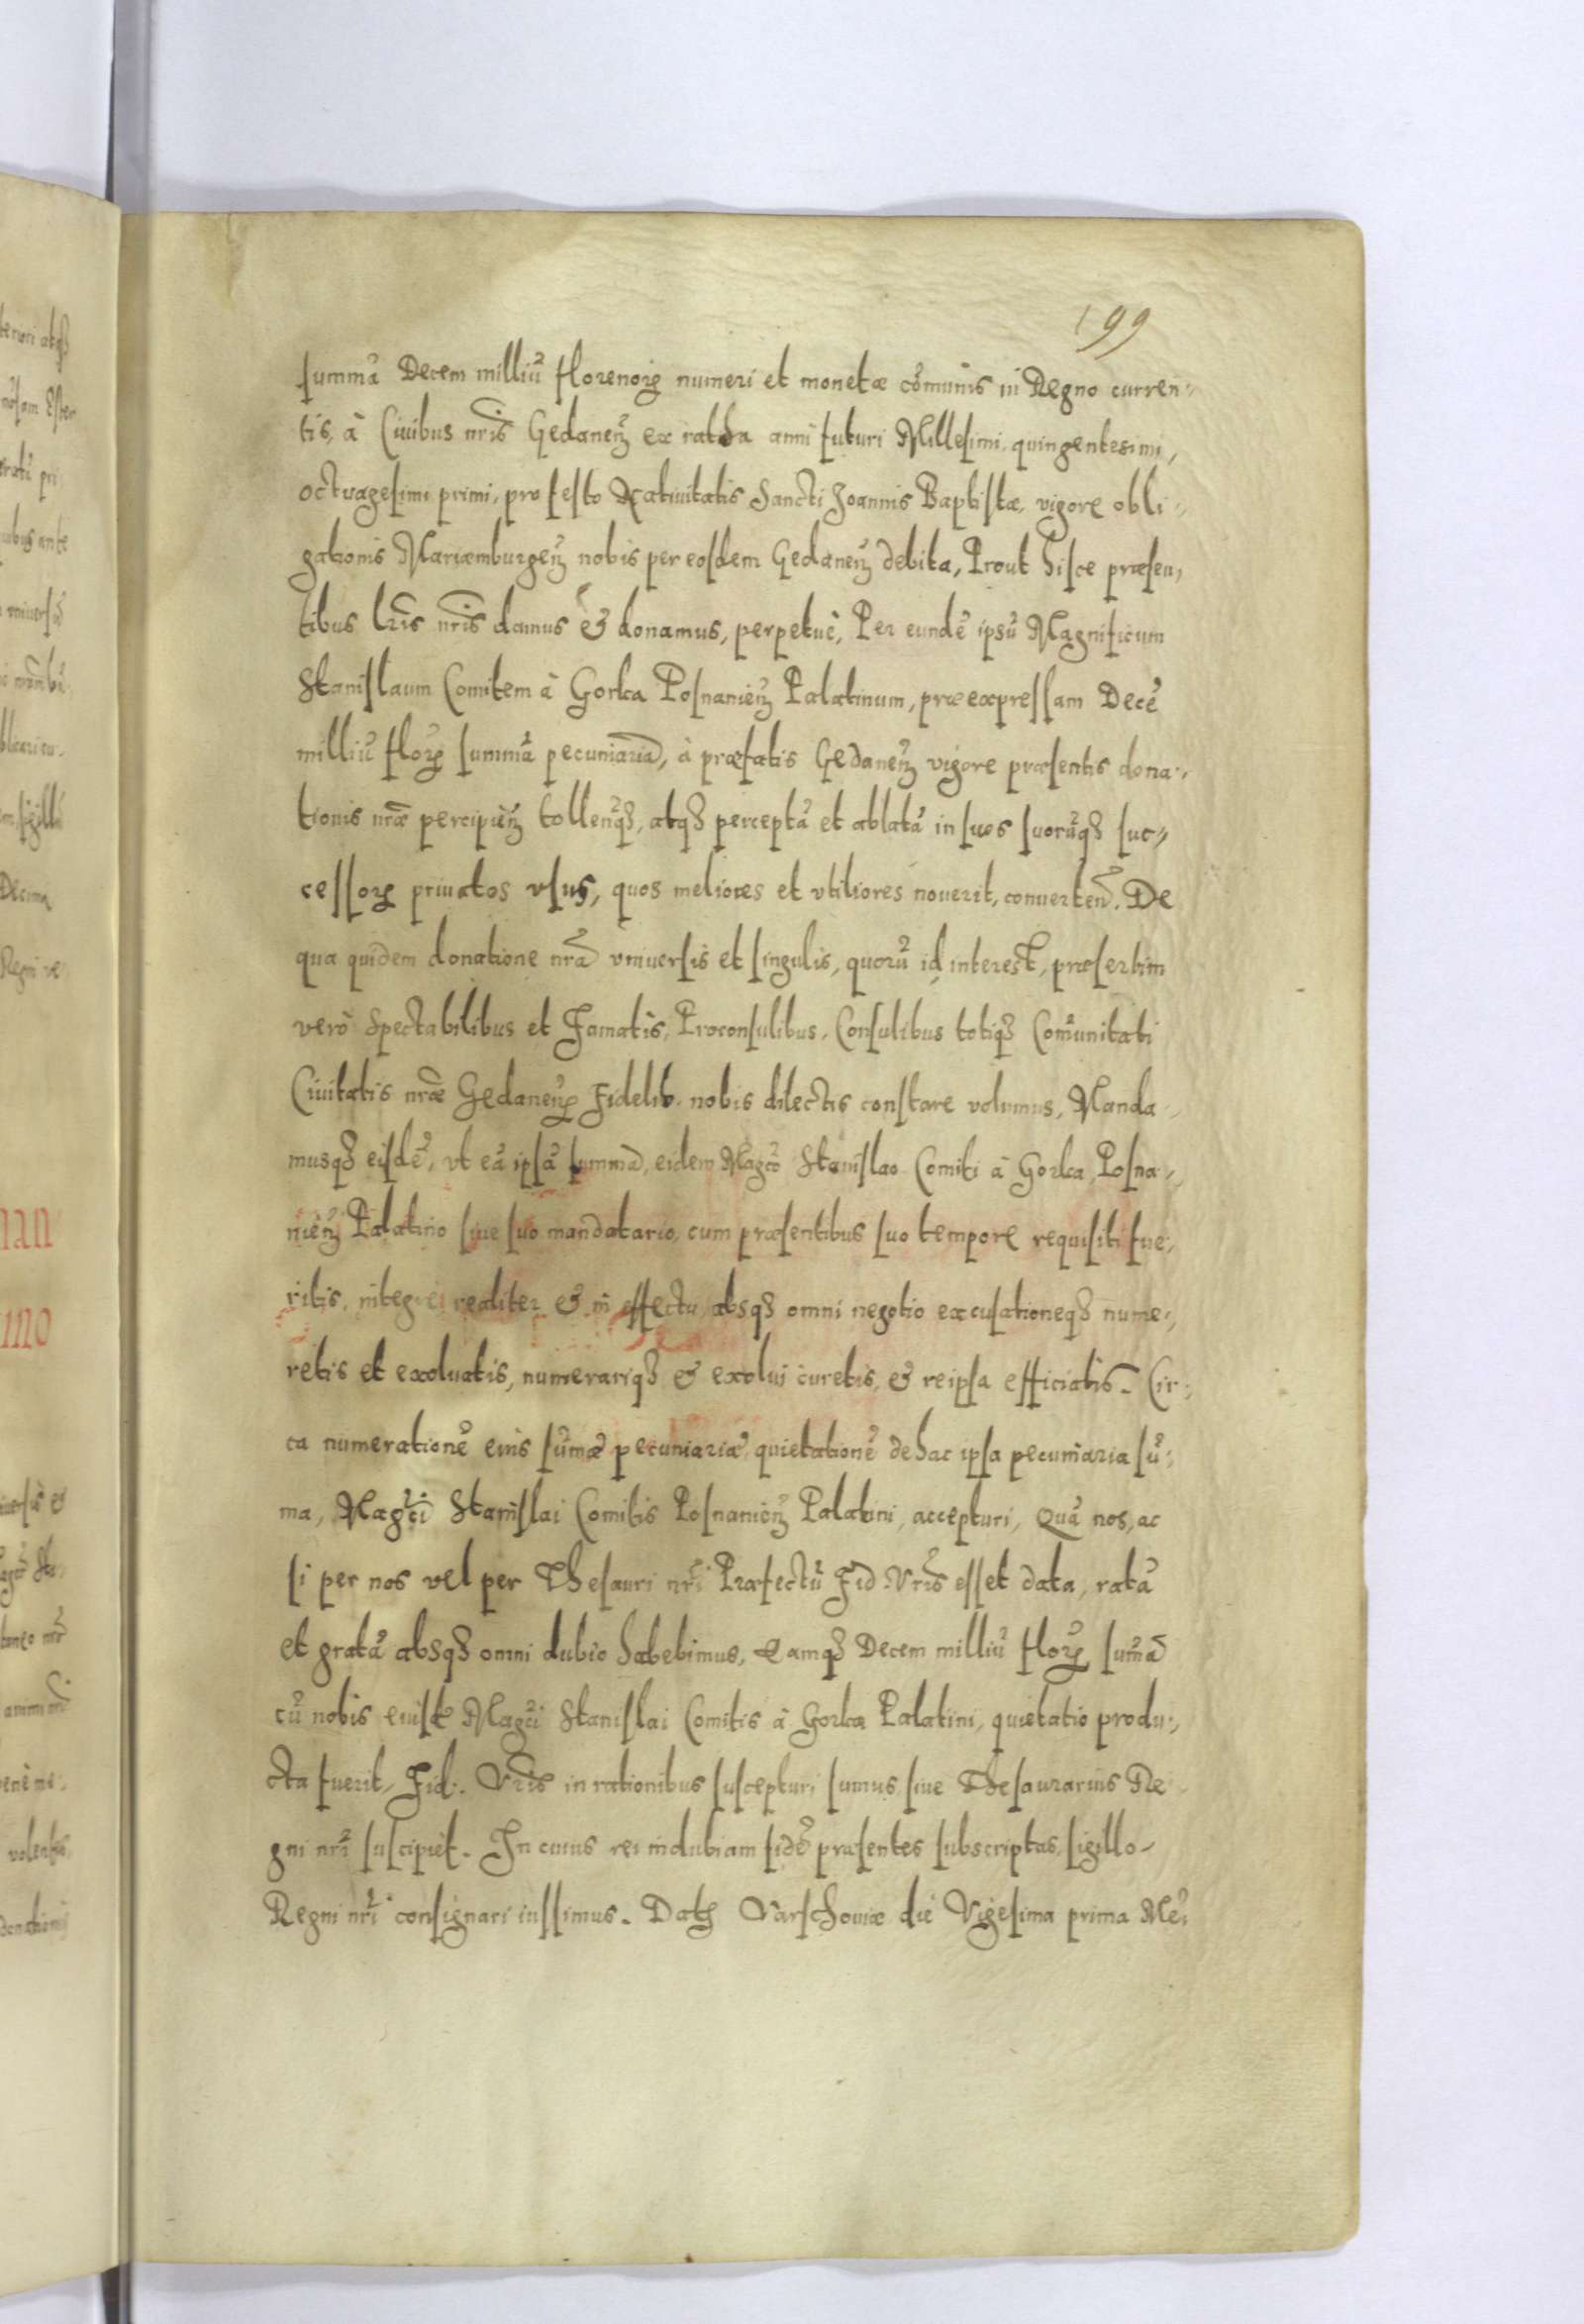 199
summã Decem milliũ florenorꝝ numeri et monetæ cõmunis in Regno curren-
tis, à Ciuibus nris̃ Gedaneñ ex ratha anni futuri Millesimi, quingentesimi,
octuagesimi primi, pro festo Natiuitatis Sancti Joannis Baptistæ, vigore obli-
gationis Mariæmburgeñ nobis per eosdem Gedaneñ debita, Prout hisce præsen,
tibus lris̃ nris̃ damus & donamus, perpetuè, Per eundẽ ipsũ Magnificum
Stanislaum Comitem à Gorka Posnanieñ Palatinum, præexpressam Decẽ
milliũ florꝝ summã pecuniariã, à præfatis Gedaneñ vigore præsentis dona-
tionis nræ̃ percipieñ tolleñqȝ, atqȝ perceptã et ablatã in suos suorũqȝ suc-
cessorꝝ priuatos vsus, quos meliores et vtiliores nouerit, conuerteñ. De
qua quidem donatione nrã vniuersis et singulis, quorũ id interest, præsertim
verò Spectabilibus et Famatis, Proconsulibus, Consulibus totiqȝ Com̃unitati
Ciuitatis nræ̃ Gedaneñ Fidelib. nobis dilectis constare volumus, Manda-
musqȝ eisdẽ, vt eã ipsã summã, eidem Magco̴ Stanislao Comiti à Gorka Posna-
nieñ Palatino siue suo mandatario, cum præsentibus suo tempore requisiti fue,
ritis, integrè realiter & in effectu absqȝ omni negotio excusationeqȝ nume,
retis et exoluatis, numerariqȝ & exolui curetis, & reipsa efficiatis. Cir,
ca numerationẽ eius sum̃æ pecuniariæ, quietationẽ de hac ipsa pecuniaria sũ,
ma, Magci̴ Stanislai Comitis Posnanieñ Palatini, accepturi, Quã nos, ac
si per nos vel per Thesauri nrĩ Præfectũ Fid. Vris̃ esset data, ratã
et gratã absqȝ omni dubio habebimus, Eamqȝ Decem milliũ florꝝ sum̃ã
cũ nobis eiusdẽ Magci̴ Stanislai Comitis à Gorka Palatini, quietatio produ,
cta fuerit, Fid. Vris̃ in rationibus suscepturi sumus siue Thesaurarius Re-
gni nrĩ suscipiet. In cuius rei indubiam fidẽ præsentes subscriptas, sigillo
Regni nrĩ consignari iussimus. Datꝫ Varschouiæ die Vigesima prima Meñ